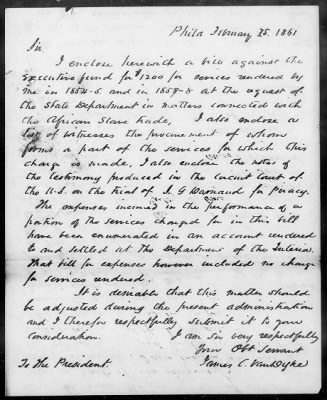 Phila February 25. 1861
Sir
I enclose herewith a bill against the
executive fund for $1200 for services rendered by
me in 1854-5. and in 1857-8 at the request of
the State Department in matters connected with
the African Slave trade, I also enclose a
list of witnesses the procurement of whom
forms a part of the services for which this
charge is made, I also enclose the notes of
the testimony produced in the Circuit Court of
the U.S. on the trial of J. G Darnaud for Piracy.
The expenses incurred in the performance of a
portion of the services charged for in this bill
have been enumerated in an account rendered
to and settled at the Department of the Interior.
That bill for expenses however included no charge
for services rendered.
It is desirable that this matter should
be adjusted during the present administration
and I therefor respectfully submit it to your
consideration. I am Sir very respectfully
Your Obt Servant
To The President. James C. VanDyke